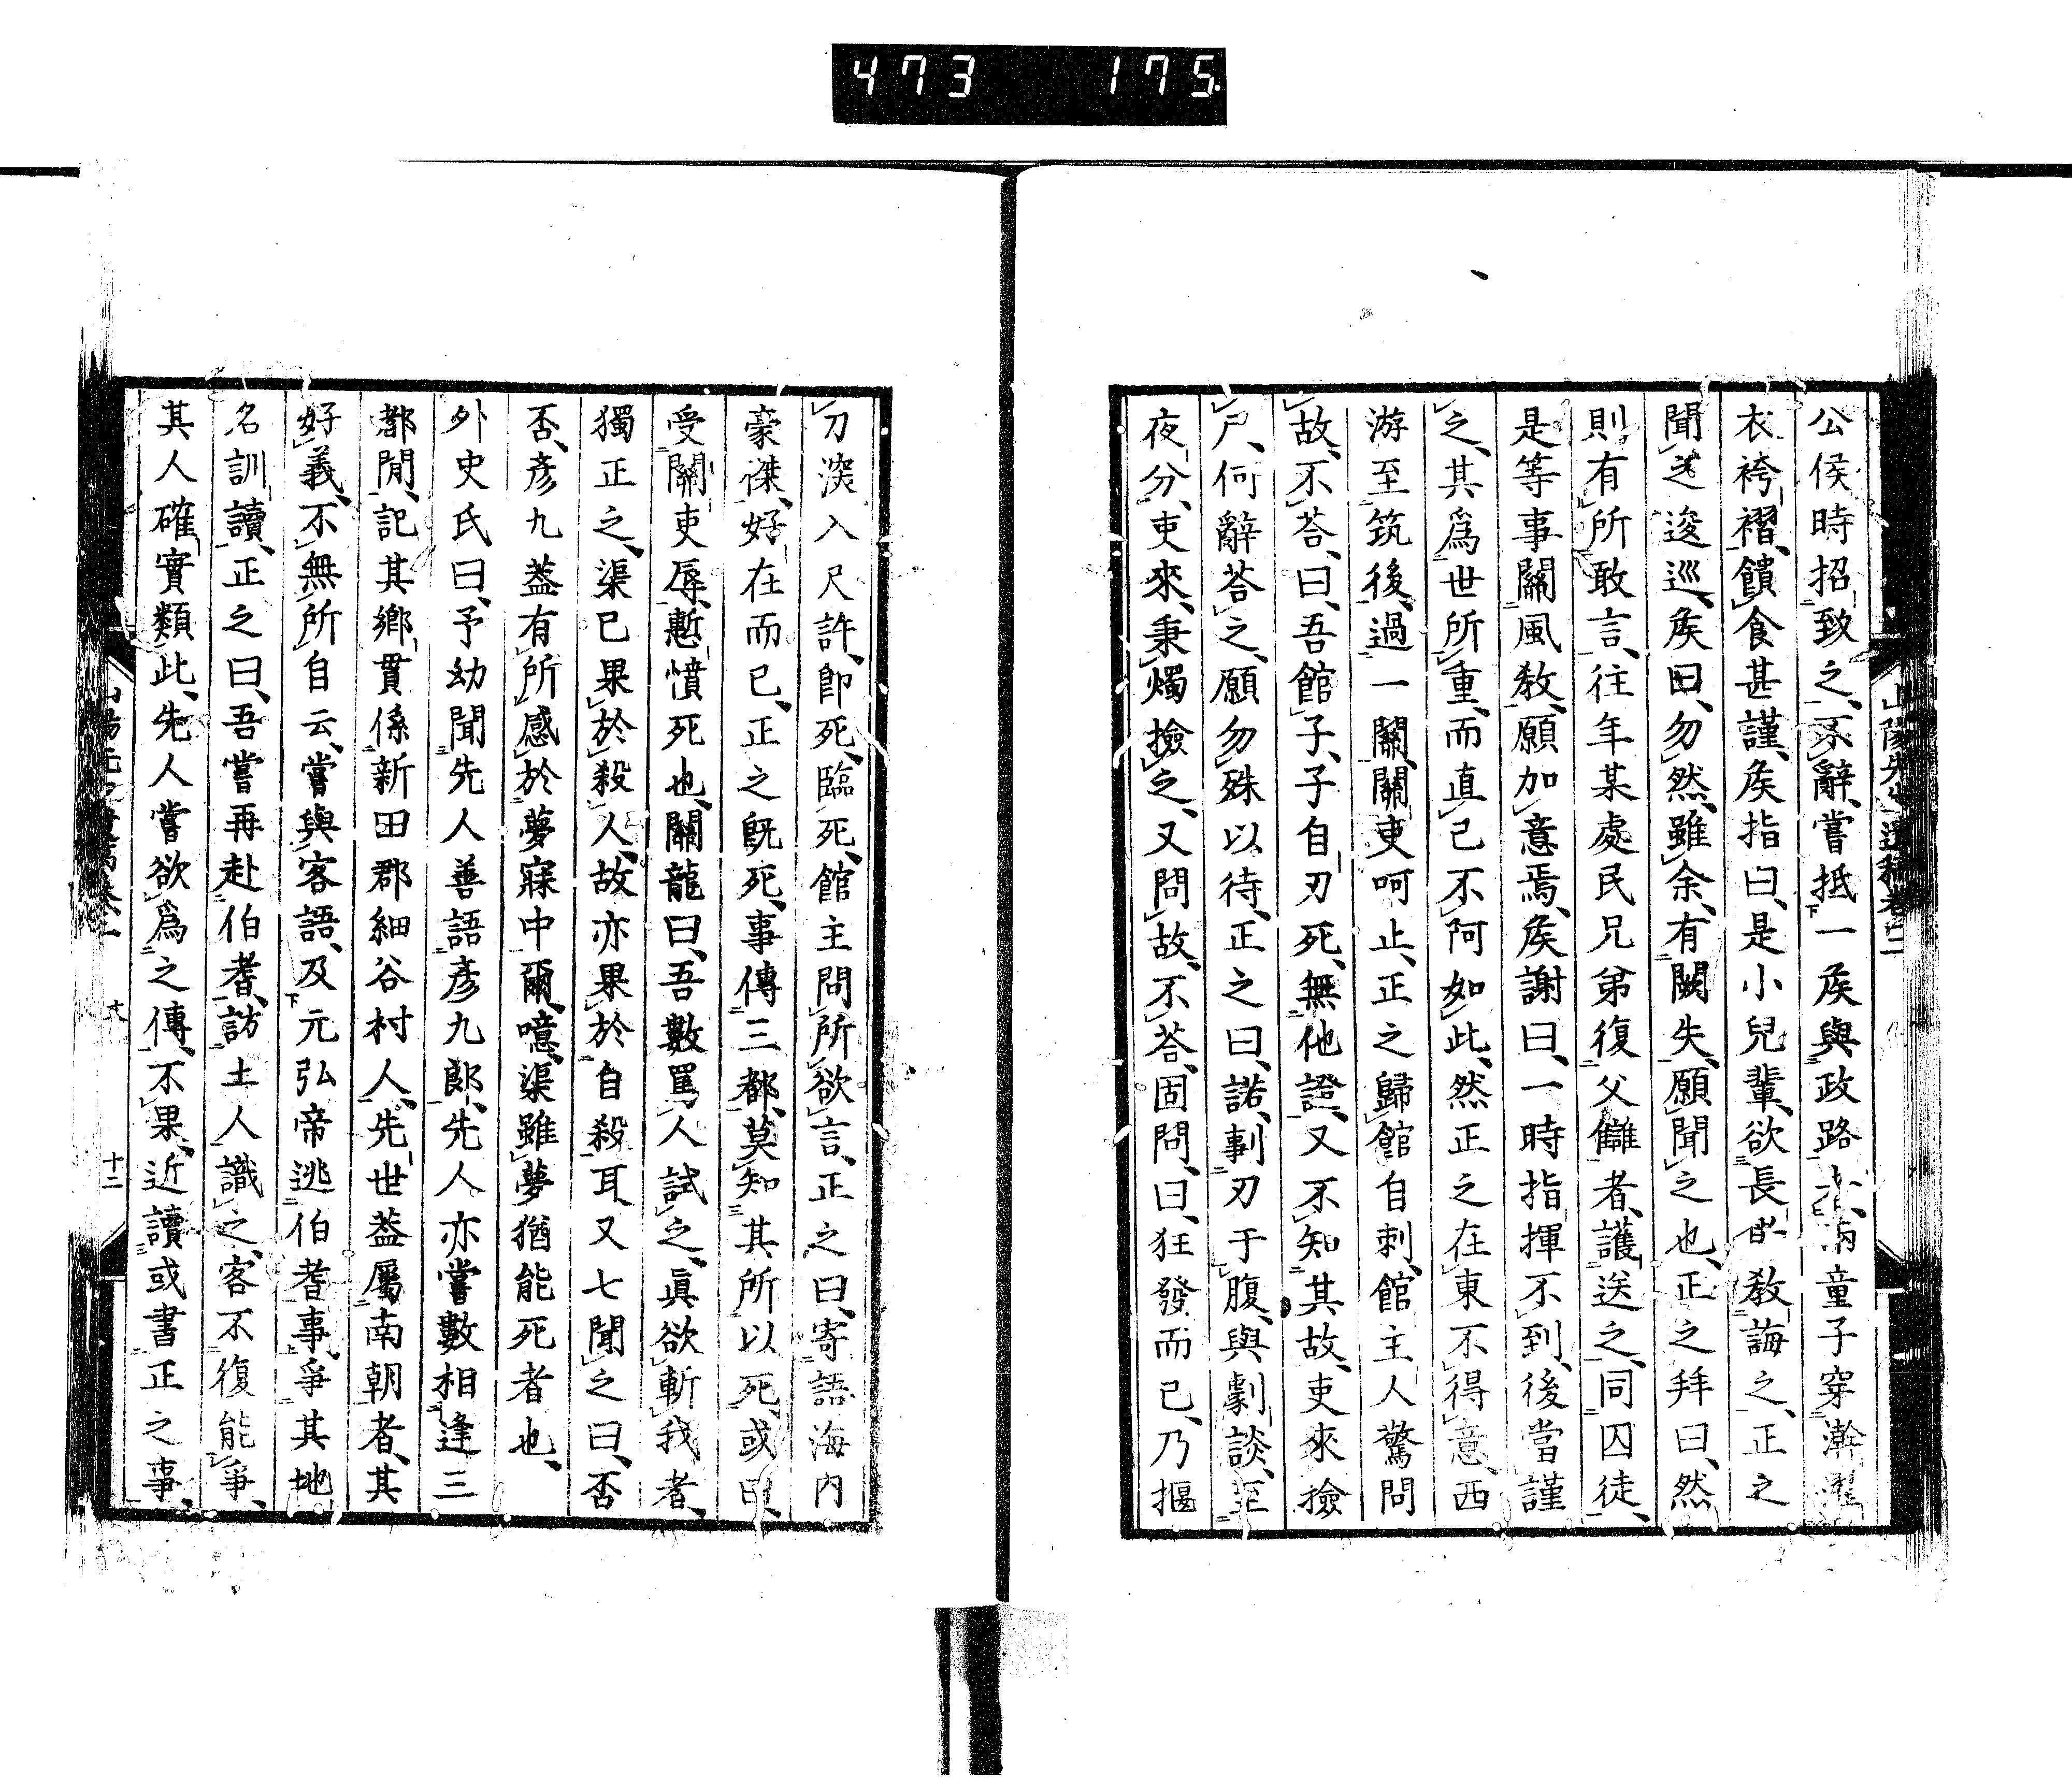 473 175
公侯時招致之、不辭、嘗抵一矦與政路者、兩童子穿澣濯
衣袴褶、饋食甚謹、矦指曰、是小兒輩、欲長者教誨之、正之
聞之逡巡、矦曰、勿然、雖余有闕失、願聞之也、正之拜曰、然
則有所敢言、往年某處民兄弟復父讎者、護送之、同囚徒、
是等事關風教、願加意焉、矦謝曰、一時指揮不到、後當謹
之、其爲世所重、而直己不阿如此、然正之在東不得意、西
游至筑後、過一關、關吏呵止、正之歸館自刺、館主人驚問
故、不荅、曰、吾館子、子自刃死、無他證、又不知其故、吏來撿
尸、何辭荅之、願勿殊以待、正之曰、諾、剚刃于腹、與劇談、至
夜分、吏來、秉燭撿之、又問故、不荅、固問、曰、狂發而已、乃揠
刀深入尺許、卽死、臨死、館主問所欲言、正之曰、寄語海内
豪傑、好在而已、正之旣死、事傳三都、莫知其所以死、或曰、
受關吏辱、慙憤死也、關龍曰、吾數罵人試之、眞欲斬我者、
獨正之、渠已果於殺人、故亦果於自殺耳、又七聞之曰、否
否、彥九蓋有所感於夢寐中爾、噫、渠雖夢猶能死者也、
外史氏曰、予幼聞先人善語彥九郎、先人亦嘗數相逢三
都閒、記其鄕貫係新田郡細谷村人、先世蓋屬南朝者、其
好義、不無所自云、嘗與客語、及元弘帝逃伯耆事、爭其地
名訓讀、正之曰、吾嘗再赴伯耆、訪土人識之、客不復能爭、
其人確實類此、先人嘗欲爲之傳、不果、近讀或書正之事、
山陽先生遺稿卷二
十二